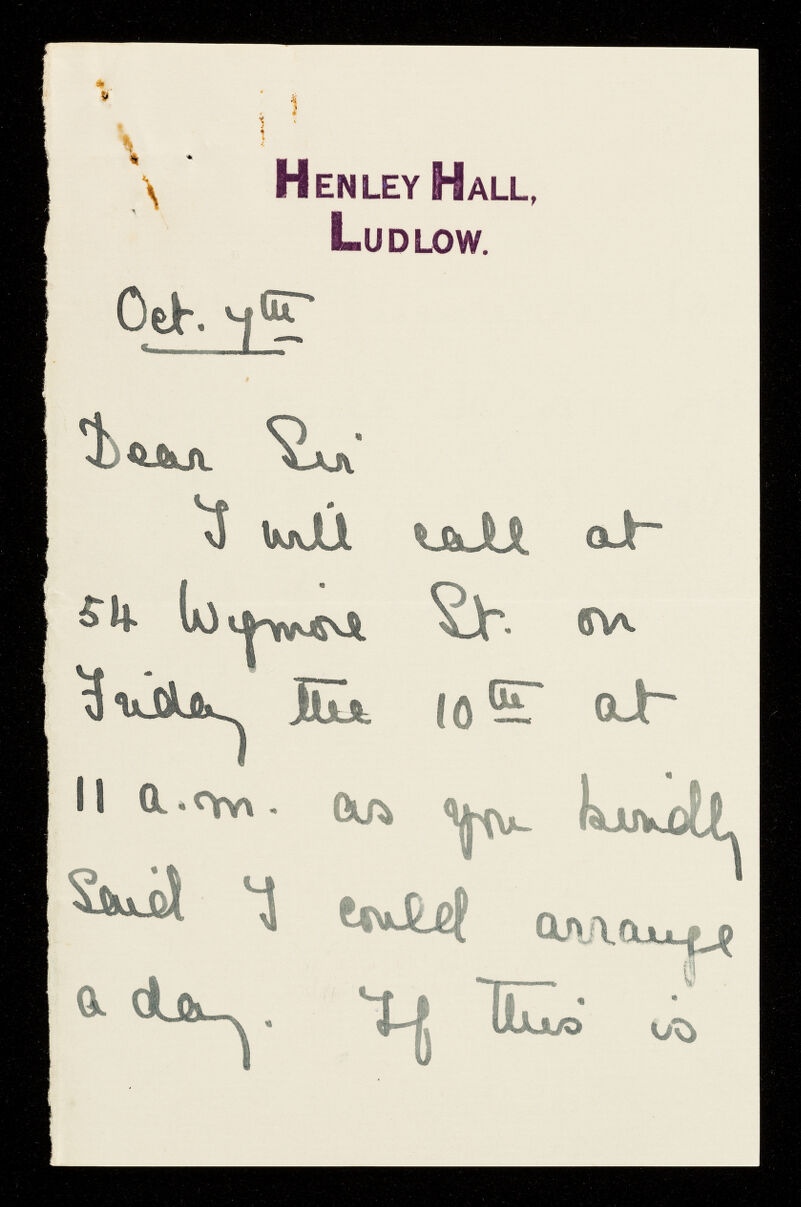 HENLEY HALL,
LUDLOW.
Oct. 7th
Dear Sir
I will call at
54 Wymore St. on
Friday the 10th at
11 a.m. as you kindly
said I could arrange
a day. If this is